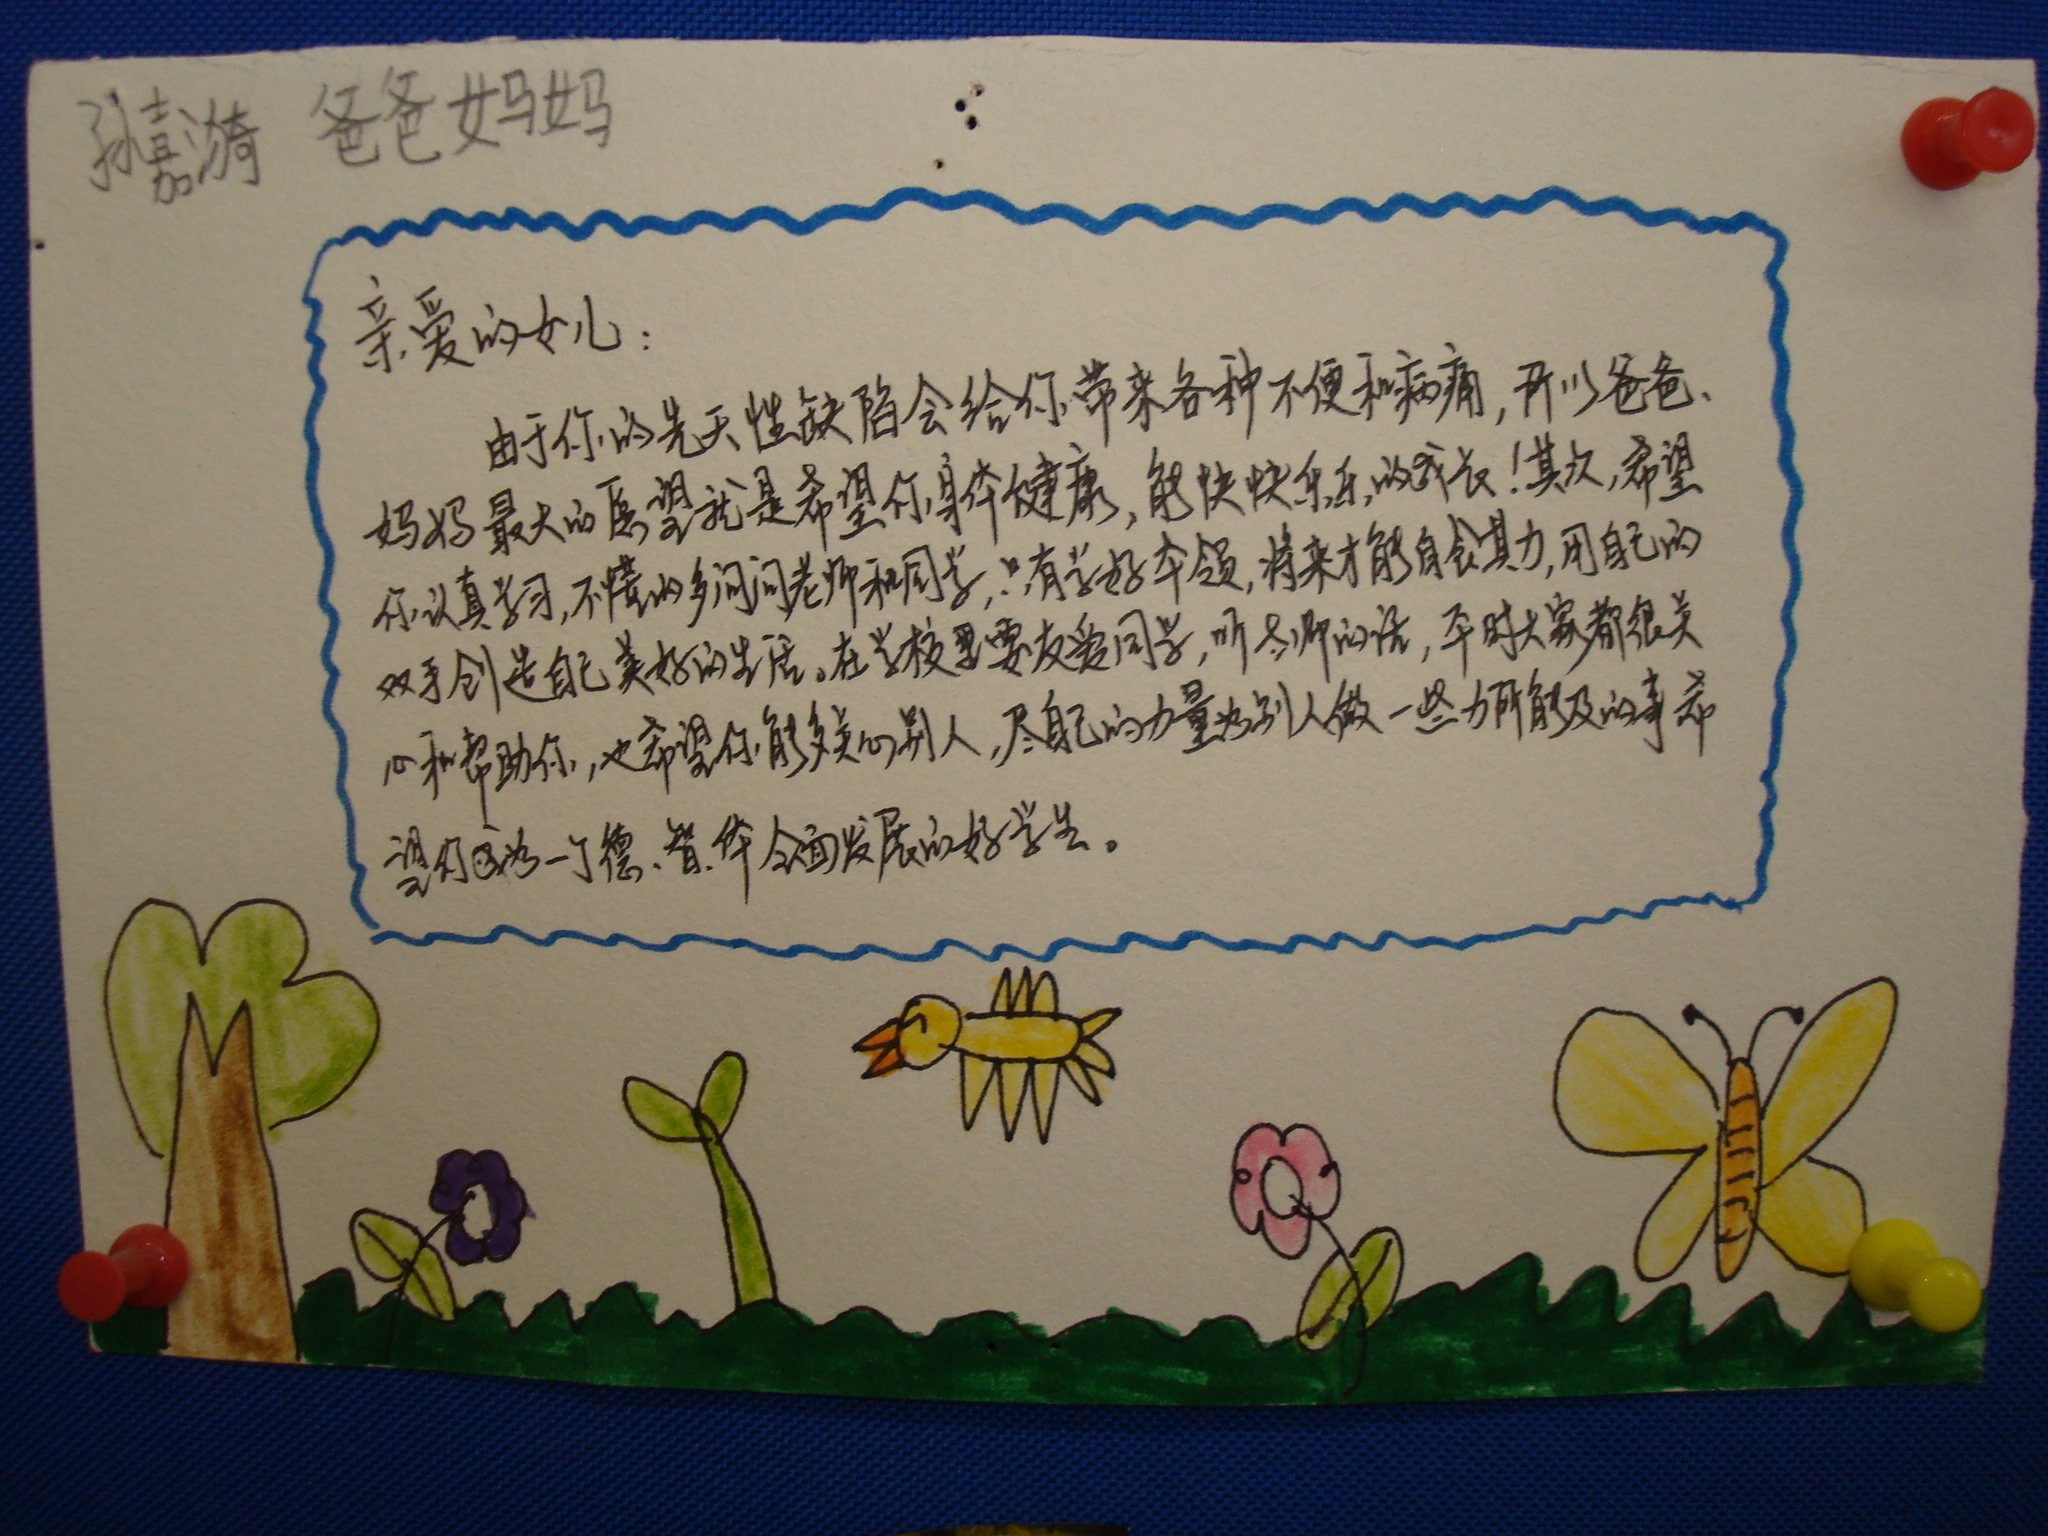 孙嘉漪 爸爸妈妈
亲爱的女儿：
由于你的先天性缺陷会给你带来各种不便和病痛，所以爸爸、
妈妈最大的愿望就是希望你身体健康，能快快乐乐的成长！其次，希望
你认真学习，不懂的多问问老师和同学，只有学好本领，将来才能自食其力，用自己的
双手创造自己美好的生活。在学校里要友爱同学，听老师的话，平时大家都很关
心和帮助你，也希望你能多关心别人，尽自己的力量为别人做一些力所能及的事希
望你成为一个德、智、体全面发展的好学生。